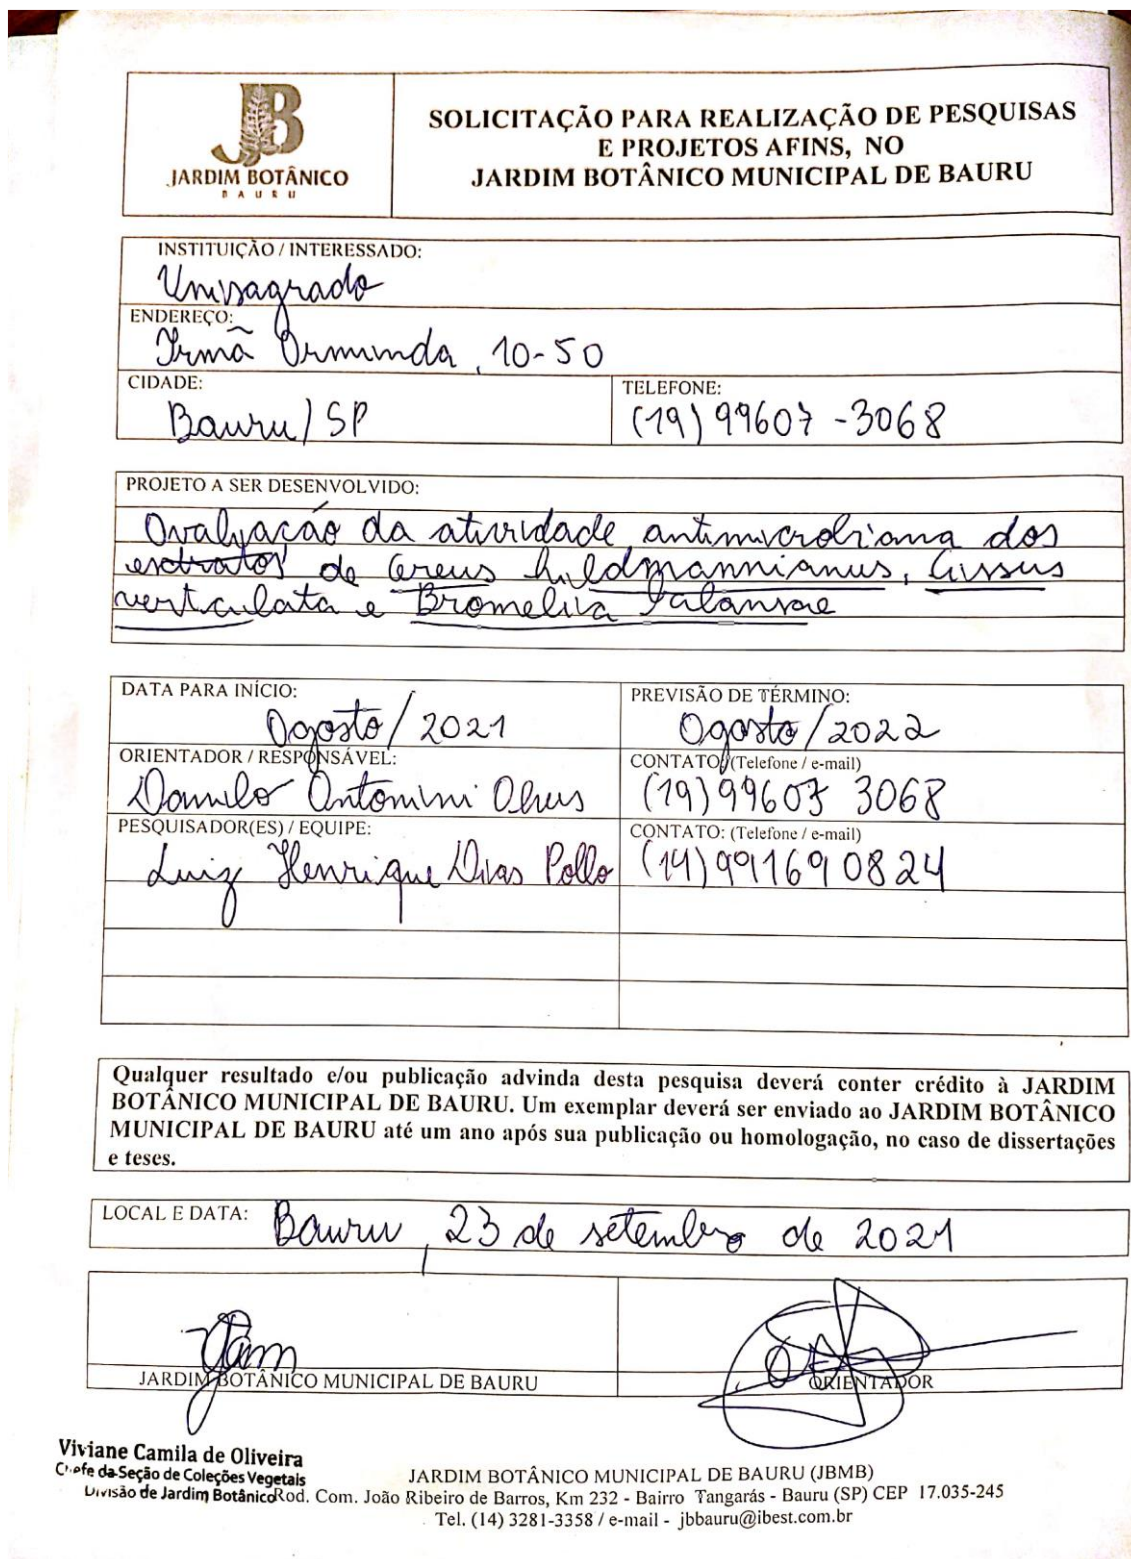 JB
JARDIM BOTÂNICO
BAURU
SOLICITAÇÃO PARA REALIZAÇÃO DE PESQUISAS
E PROJETOS AFINS, NO
JARDIM BOTÂNICO MUNICIPAL DE BAURU
INSTITUIÇÃO / INTERESSADO:
Unisagrado
ENDEREÇO:
Irmã Orminda, 10-50
CIDADE:
Bauru/SP
TELEFONE:
(19) 99607-3068
PROJETO A SER DESENVOLVIDO:
Avaliação da atividade antimicrobiana dos
extratos de Cereus hildmannianus, Cissus
verticulata e Bromelia balansae
DATA PARA INÍCIO:
Agosto/2021
PREVISÃO DE TÉRMINO:
Agosto/2022
ORIENTADOR / RESPONSÁVEL:
Danilo Antonini
CONTATO: (Telefone / e-mail)
(19) 99607 3068
PESQUISADOR(ES) / EQUIPE:
Luiz Henrique Dias Pollo
CONTATO: (Telefone / e-mail)
(14) 99169 0824
Qualquer resultado e/ou publicação advinda desta pesquisa deverá conter crédito à JARDIM
BOTÂNICO MUNICIPAL DE BAURU. Um exemplar deverá ser enviado ao JARDIM BOTÂNICO
MUNICIPAL DE BAURU até um ano após sua publicação ou homologação, no caso de dissertações
e teses.
LOCAL E DATA: Bauru, 23 de setembro de 2021
JARDIM BOTÂNICO MUNICIPAL DE BAURU
ORIENTADOR
Viviane Camila de Oliveira
Chefe da Seção de Coleções Vegetais
Divisão de Jardim Botânico
JARDIM BOTÂNICO MUNICIPAL DE BAURU (JBMB)
Rod. Com. João Ribeiro de Barros, Km 232 - Bairro Tangarás - Bauru (SP) CEP 17.035-245
Tel. (14) 3281-3358 / e-mail - jbbauru@ibest.com.br